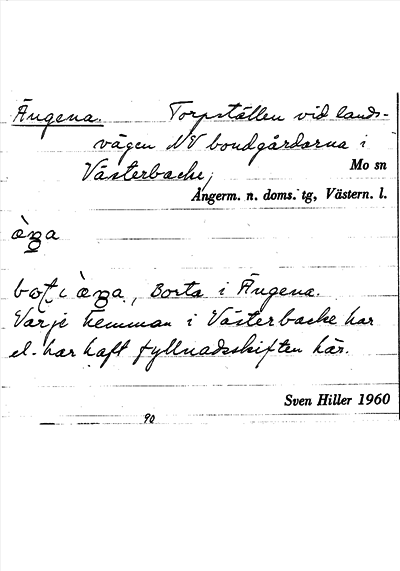 Ängena. Torpställen vid lands-
vägen NV bondgårdarna i
Västerbacke;
Mo sn
Ångerm. n. doms. tg, Västern. l.
Borta i Ängena.
Varje hemman i Västerbacke har
el. har haft fyllnadsskiften här.
Sven Hiller 1960
90